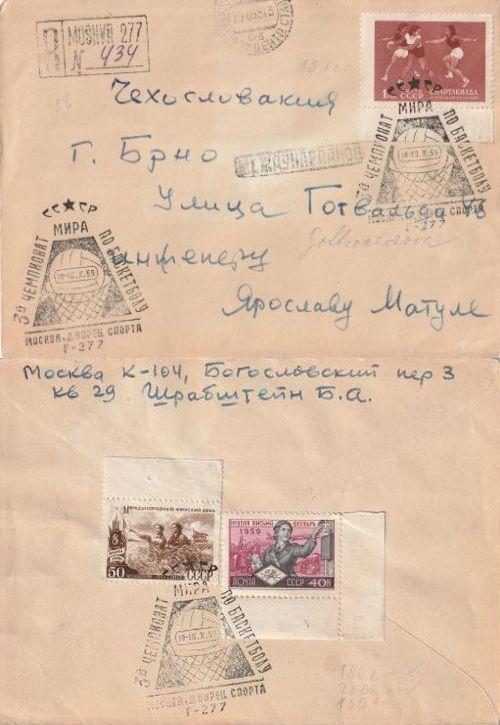 МОСКВА 277
R
N 434
СССР
СПАРТАКИАДА
Чехословакия
г. Брно
МЕЖДУНАРОДНОЕ
Улица Готвальда
инженеру
Ярославу Матуле
СССР
3й ЧЕМПИОНАТ МИРА ПО БАСКЕТБОЛУ
10-18.X.59
МОСКВА-ДВОРЕЦ СПОРТА
Г-277
СССР
3й ЧЕМПИОНАТ МИРА ПО БАСКЕТБОЛУ
МОСКВА-ДВОРЕЦ СПОРТА
Г-277
Москва К-104, Богословский пер 3
кв 29. Шрабштейн Б.А.
МЕЖДУНАРОДНЫЙ ЖЕНСКИЙ ДЕНЬ
8
50
СССР
НЕДЕЛЯ ПИСЬМА ОКТЯБРЬ
1959
ПОЧТА СССР 40К
СССР
3й ЧЕМПИОНАТ МИРА ПО БАСКЕТБОЛУ
МОСКВА-ДВОРЕЦ СПОРТА
Г-277